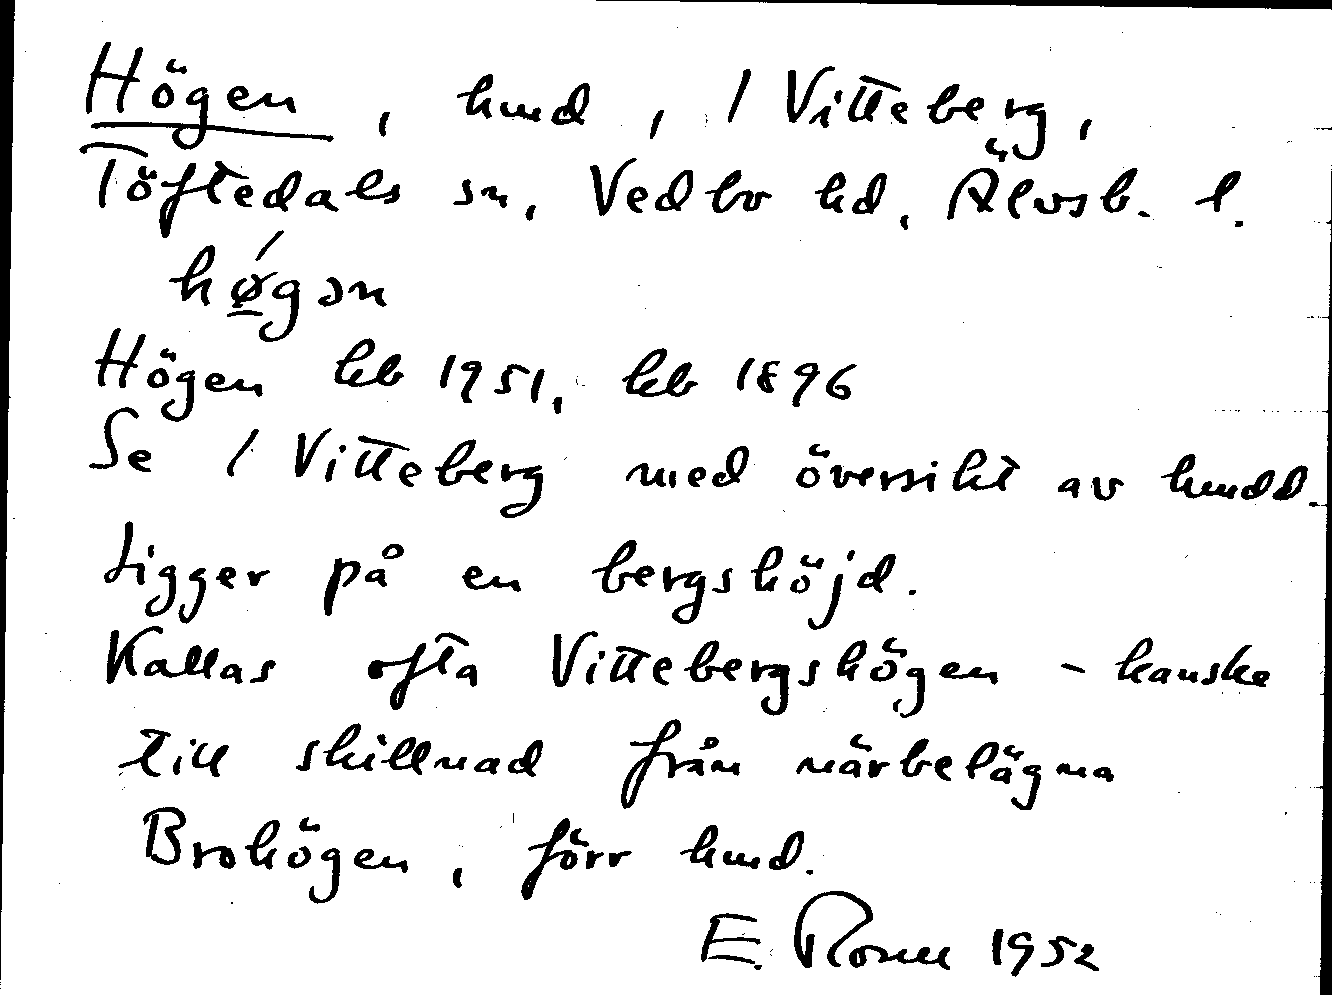 Högen, hmd, 1 Vitteberg,
Töftedals sn, Vedbo hd, Älvsb. l.
hǿ̲gən
Högen kb 1951, kb 1896
Se 1 Vitteberg med översikt av hmdd.
Ligger på en bergshöjd.
Kallas ofta Vittebergshögen - kanske
till skillnad från närbelägna
Brohögen, förr hmd.
E. 1952